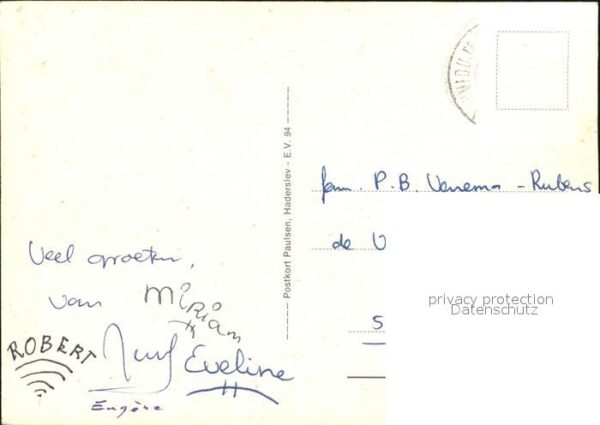 Veel groeten,
van Miriam
ROBERT
Eveline
Eugène
Postkort Paulsen, Haderslev - E.V. 94
fam. P.B. Venema - Rubens
de V
S
privacy protection
Datenschutz